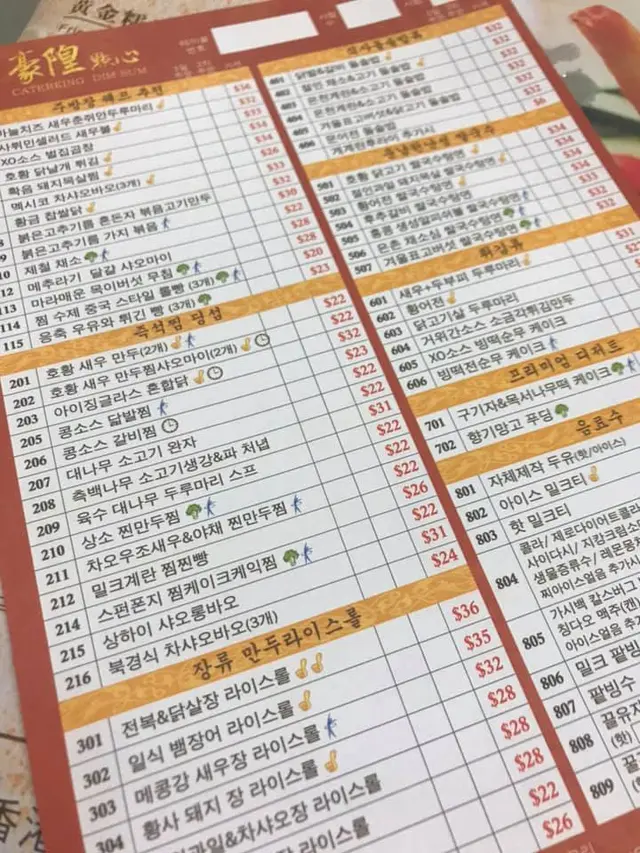 黄金糕
豪隍 點心
CATERKING DIM SUM
테이블
번호
주방장 쉐프 추천
하늘치즈 새우춘쥐안두루마리 $36
사쮜민샐러드 새우볼 $32
XO소스 벌집곰장 $33
호황 닭날개 튀김 $34
확음 돼지목살찜 $26
멕시코 차샤오바오(3개) $33
황금 찹쌀닭 $32
붉은고추기름 혼돈자 볶음고기만두 $30
붉은고추기름 가지 볶음 $22
10 제철 채소 $28
112 메추라기 달걀 샤오마이 $28
113 마라매운 목이버섯 무침 $20
114 찜 수제 중국 스타일 롤빵 (3개) $23
115 응축 우유와 튀긴 빵 (3개)
즉석찜 딤섬
201 호황 새우 만두(2개) $22
202 호황 새우 만두찜샤오마이(2개) $22
203 아이징글라스 혼합닭 $32
205 콩소스 닭발찜 $23
206 콩소스 갈비찜 $22
207 대나무 소고기 완자 $22
208 측백나무 소고기생강&파 처녑 $31
209 육수 대나무 두루마리 스프 $22
210 상소 찐만두찜 $22
211 차오우조새우&야채 찐만두찜 $26
212 밀크계란 찜찐빵 $22
214 스펀폰지 찜케이크케익찜 $31
215 상하이 샤오롱바오 $24
216 북경식 차샤오바오(3개)
장류 만두라이스롤
301 전복&닭살장 라이스롤 $36
302 일식 뱀장어 라이스롤 $35
303 메콩강 새우장 라이스롤 $32
304 황사 돼지 장 라이스롤 $28
과일&차샤오장 라이스롤 $28
라이스롤 $28
$22
$26
식사돌솥밥류
401 닭발&갈비 돌솥밥 $32
402 절인 채소&고기 돌솥밥 $32
403 온천계란&고기 돌솥밥 $32
404 온천계란&소고기 돌솥밥 $32
405 겨울표고버섯&닭고기 돌솥밥 $32
406 모어전 돌솥밥 $32
계계란후라이 추가시 $6
운남현난성 쌀국수
501 호황 닭고기 쌀국수탕면 $34
502 절인과일 돼지목살 쌀국수탕면 $34
503 황어전 쌀국수탕면 $34
504 후추갈비 쌀국수탕면 $34
505 홍콩 생상알피쉬볼 쌀국수탕면 $34
506 온촌 채소심 쌀국수탕면 $32
507 겨울표고버섯 쌀국수탕면 $32
튀김류
601 새우+두부피 두루마리 $31
602 황어전
603 닭고기살 두루마리
604 거위간소스 소금각튀김만두
605 XO소스 빙떡전순무 케이크
606 빙떡전순무 케이크
프리미엄 디저트
701 구기자&목서나무떡 케이크
702 향기망고 푸딩
음료수
801 자체제작 두유(핫/아이스)
802 아이스 밀크티
803 핫 밀크티
804 콜라/ 제로다이어트콜라
사이다시/ 지캄크림소
생물증류수/ 레몬홍차
찌아이스얼음 추가시
805 가시백 칼스버그
칭다오 맥주(캔)
아이스얼음 추가
806 밀크 팥빙
807 팥빙수
808 꿀유자
(핫)
809 꿀
香港